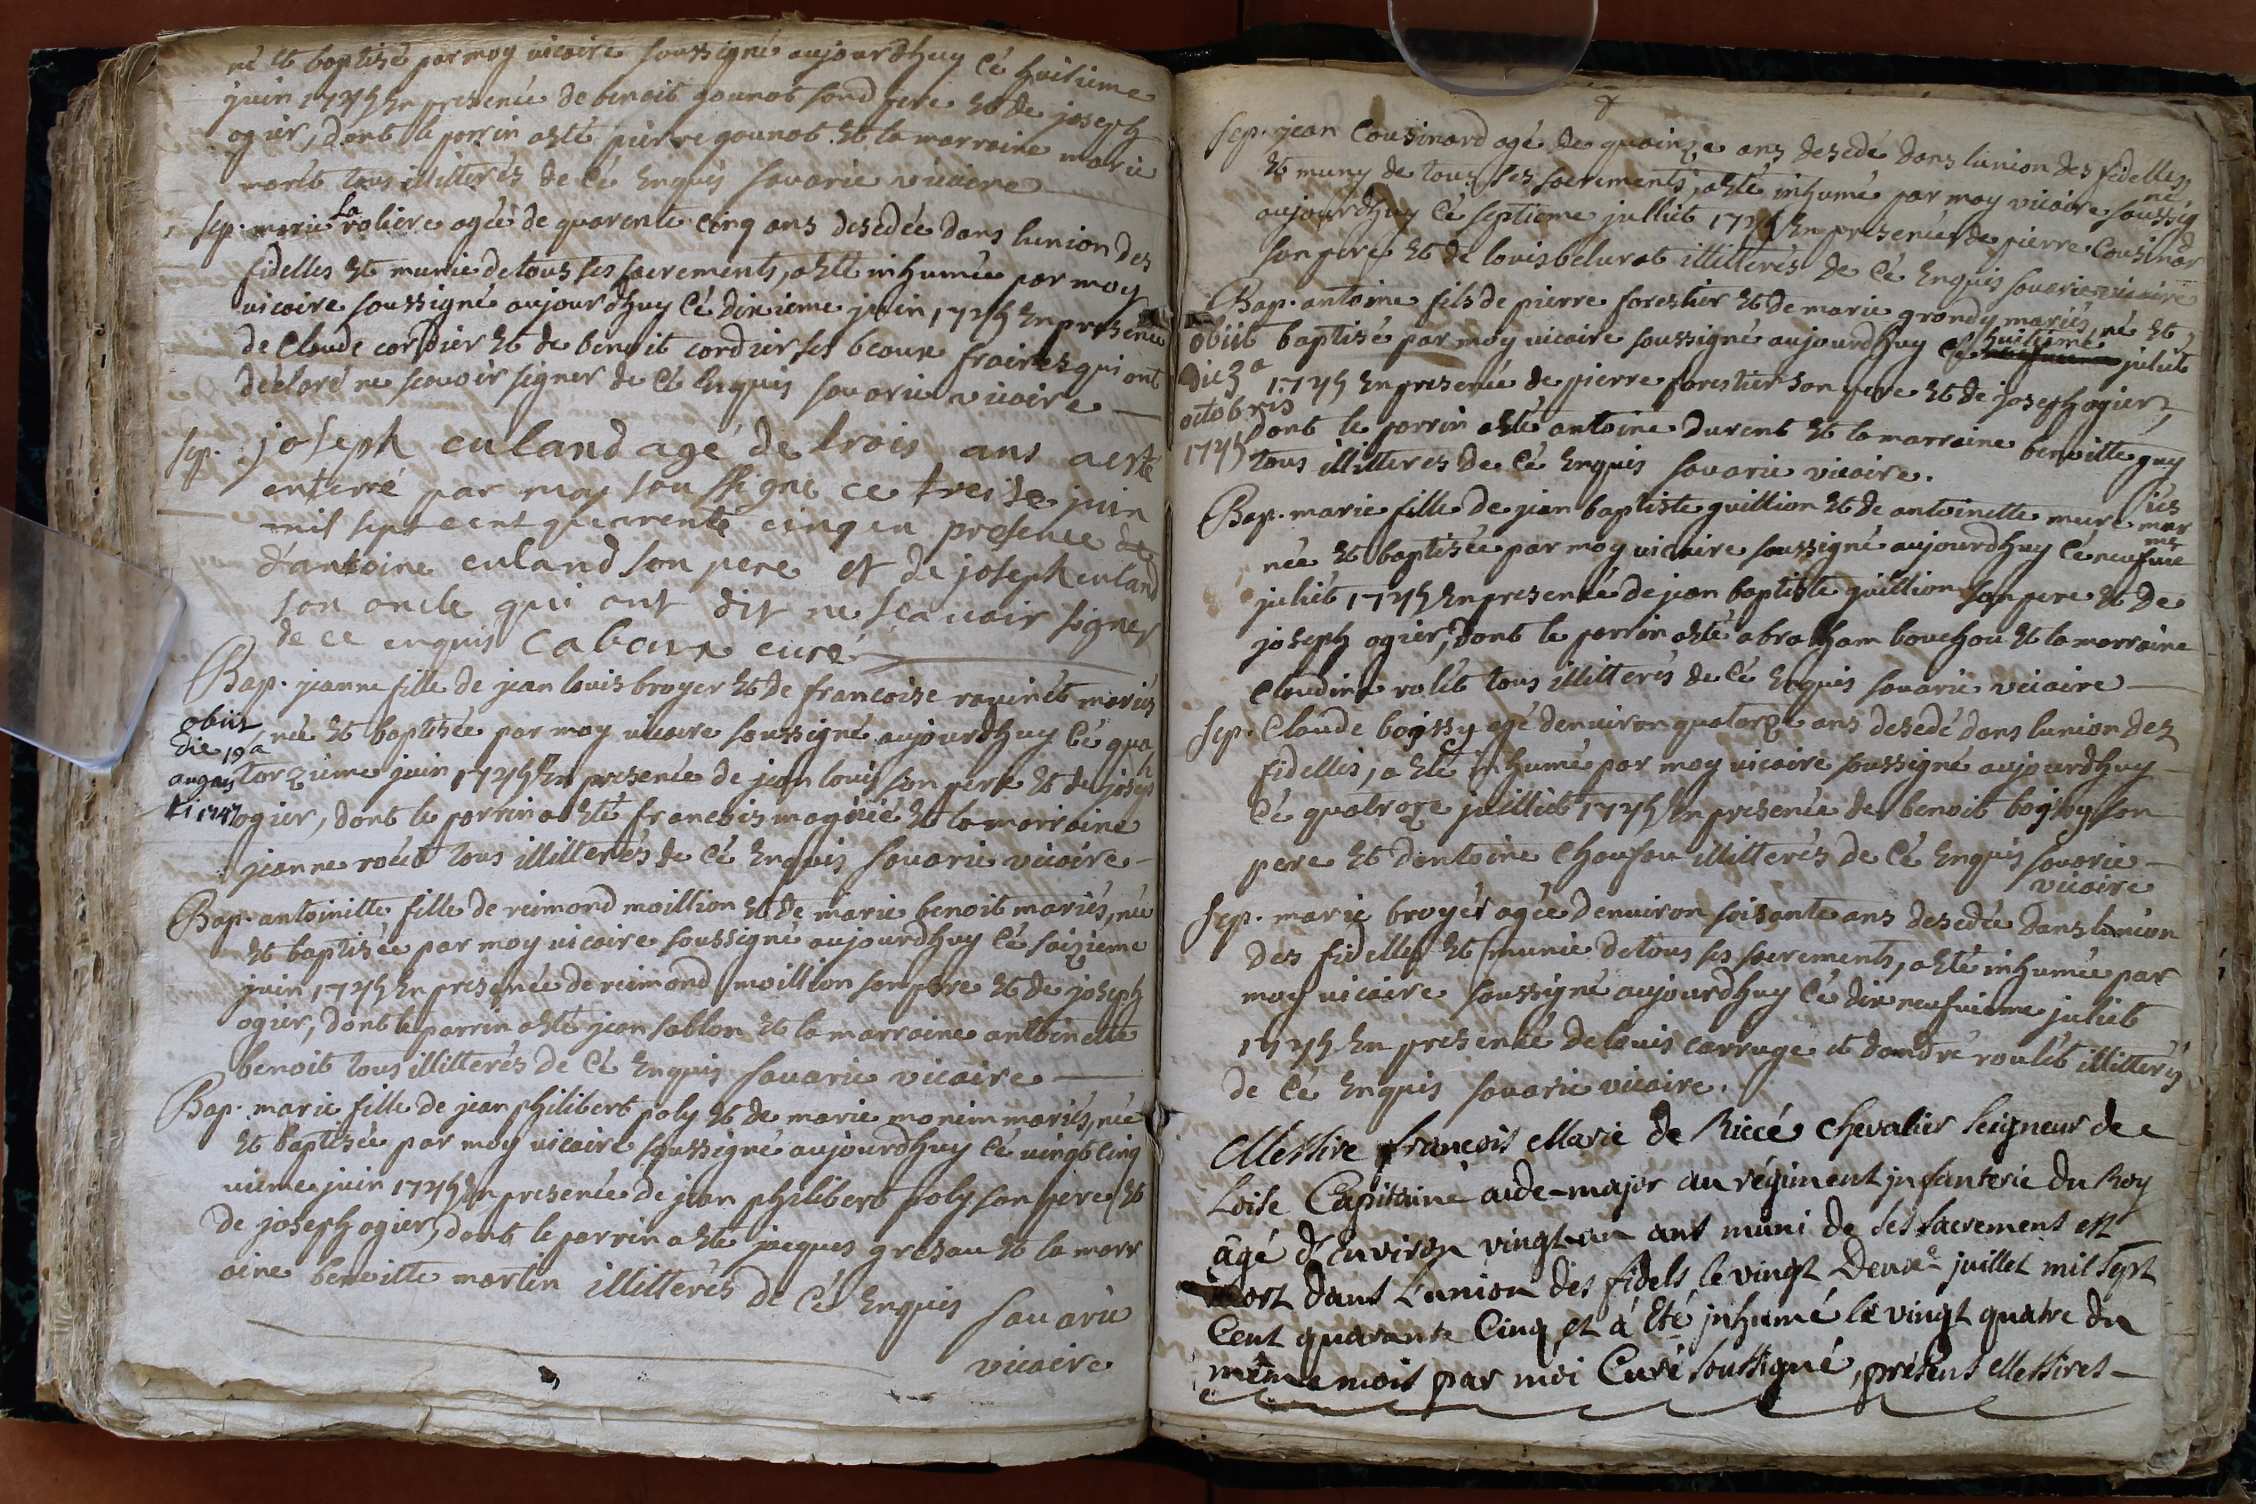 né et baptisé par moy vicaire soussigné aujourdhuy cé huitieme
juin 1745 en presencé de benoit gounot sond pere et de joseph
ogier, dont le parrin a esté pierre gounot et la marraine marie
tous illitterés de cé enquis savarie vicaire
sep. marie la valiere agée de quarente cinq ans desedée dans lunion des
fidelles et munie de tous ses sacrements, a esté inhumée par moy
vicaire soussigné aujourdhuy cé dixieme juin 1745 en presencé
de claude cordier et de benoit cordier ses beaux fraires qui ont
déclaré ne scavoir signer de cé enquis savarie vicaire
sep. joseph culand agé de trois ans a esté
enterré par moy soussigné ce treise juin
mil sept cent quarente cinq en presence de
d'antoine culand son pere et de joseph culand
son oncle qui ont dit ne sçavoir signer
de ce enquis Caboux curé
Bap. jeanne fille de jean louis broyer et de francoise ravinét mariés
obiit
die 19a
augus
ti 1747
née et baptisée par moy vicaire soussigné aujourdhuy cé qua
torzieme juin 1745 en presencé de jean louis son pere et de joseph
ogier, dont le parrin a esté francois magnié et la marraine
jeanne tous illitterés de cé enquis savarie vicaire
Bap. antoinette fille de reimond moillion et de marie benoit mariés, née
et baptisée par moy vicaire soussigné aujourdhuy cé saizieme
juin 1745 en presencé de reimond moillion son pere et de joseph
ogier, dont le parrin a esté jean sablon et la marraine antoinette
benoit tous illitterés de cé enquis savarie vicaire
Bap. marie fille de jean philibert poly et de marie monin mariés, née
et baptisée par moy vicaire soussigné aujourdhuy cé vingt cinq
vieme juin 1745 en presencé de jean philibert poly son pere et
de joseph ogier, dont le parrin a esté jacques grosau et la marr
aine benoitte martin illitterés de cé enquis savarie
vicaire
sep. jean cousinard agé de quainze ans desedé dans lunion des fidelles
et muny de tous ses sacrements, a esté inhumé par moy vicaire soussigné
aujourdhuy cé septieme julliet 1745 en presencé de pierre cousinard
son pere et de louis belurat illitterés de cé enquis savarie vicaire
Bap. antoine fils de pierre forestier et de marie grandy mariés, né et
obiit
die 3a
octobris
1745
baptisé par moy vicaire soussigné aujourdhuy cé huitieme juliet
1745 en presencé de pierre forestier son pere et de joseph ogier,
dont le parrin a esté antoine durent et la marraine benoitte guy
tous illitterés de cé enquis savarie vicaire.
Bap. marie fille de jean baptiste guillion et de antoinette mure mariés
née et baptisée par moy vicaire soussigné aujourdhuy cé neufvieme
juliet 1745 en presencé de jean baptiste guillion son pere et de
joseph ogier, dont le parrin a esté abraham bouchou et la marraine
claudine rolét tous illitterés de cé enquis savarie vicaire
sep. Claude boissy agé denviron quatorze ans desedé dans lunion des
fidelles, a esté inhumé par moy vicaire soussigné aujourdhuy
cé quatroze juilliet 1745 en présencé de benoit boissy son
pere et dantoine chousou illitterés de cé enquis savarie
vicaire
sep. marie broyér agée denviron soixante ans desedée dans lunion
des fidelles et munie de tous ses sacrements, a esté inhumée par
moy vicaire soussigné aujourdhuy cé dix neufvieme juliet
1745 en presencé de louis carruge et dandré roulét illitterés
de cé enquis savarie vicaire.
Messire francois Marie de Riccé chevalier seigneur de
Loise Capitaine aide-major au régiment infanterie du Roy
âgé d'Environ vingt-un ans muni de ses sacrement est
mort dans l'union des fidels le vingt Deuxe juillet mil sept
Cent quarante Cinq et à Eté inhumé le vingt quatre du
même mois par moi Curé soussigné, présens Messires